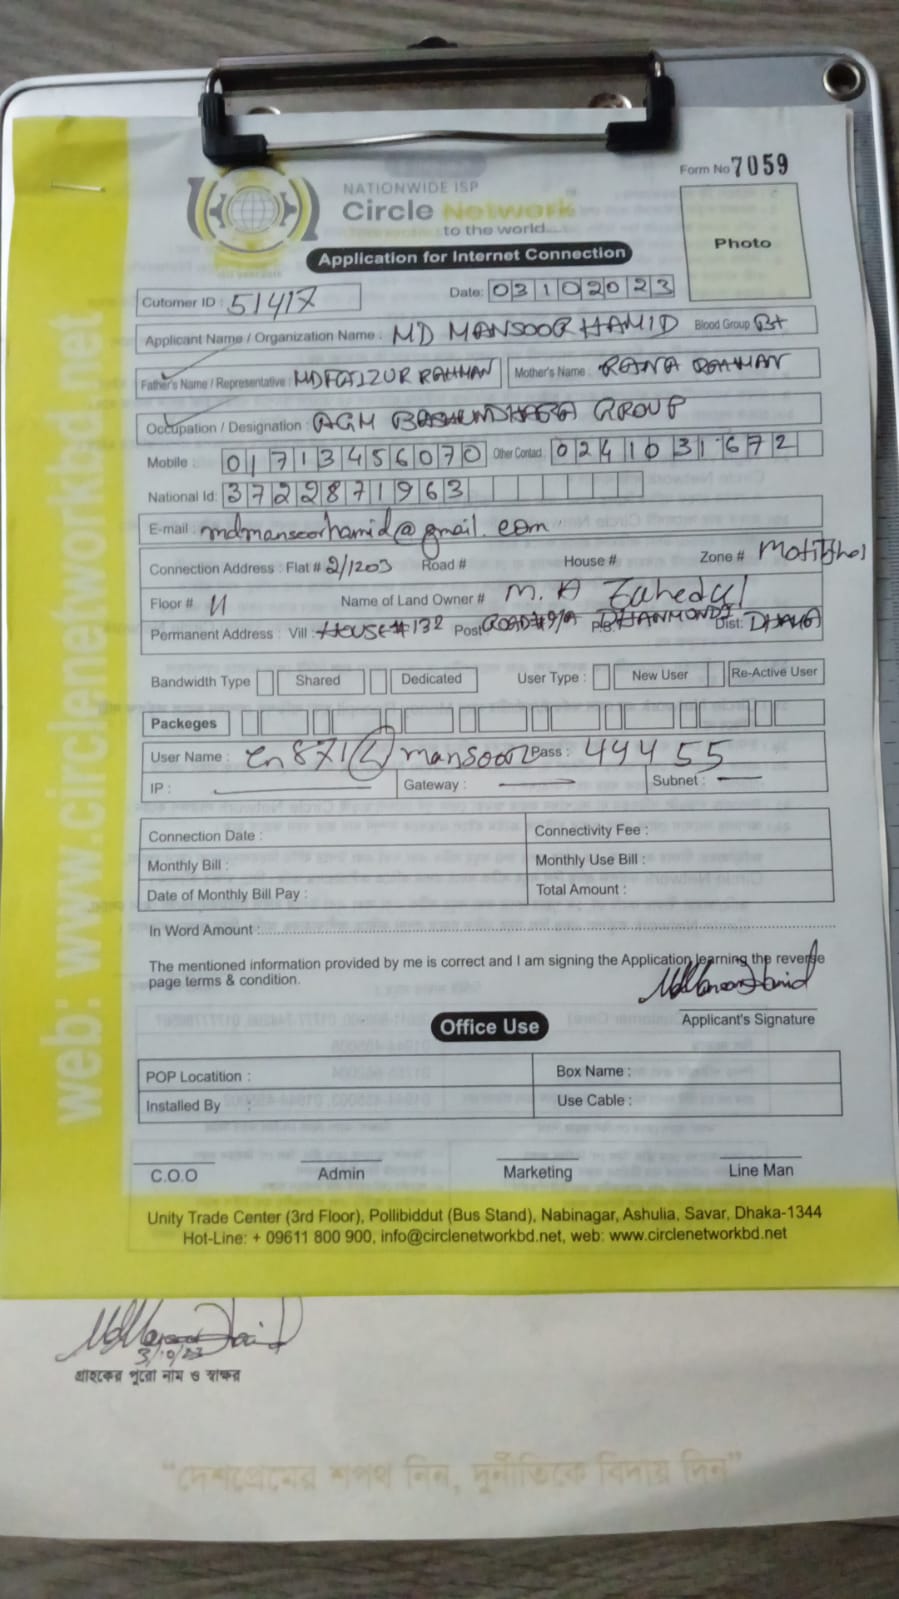 Form No 7059
NATIONWIDE ISP
Circle Network
to the world...
Application for Internet Connection
Photo
Cutomer ID : 51417 Date: 03102023
Applicant Name / Organization Name : MD MANSOOR HAMID Blood Group B+
Father's Name / Representative : MD FOIZUR RAHMAN Mother's Name : RAHMAN
Occupation / Designation : AGM BASHUNDHARA GROUP
Mobile : 01713456070 Other Contact 0241031672
National Id: 3722871963
E-mail : mdmansoorhamid@gmail.com
Connection Address : Flat # 2/1203 Road # House # Zone #
Floor # 11 Name of Land Owner # M. A Zahedul
Permanent Address : Vill : HOUSE # 132 Post ROAD # 9/A P.S: DHANMONDI Dist: DHAKA
Bandwidth Type Shared Dedicated User Type : New User Re-Active User
Packeges
User Name : mansoor Pass : 444455
IP : Gateway : Subnet :
Connection Date : Connectivity Fee :
Monthly Bill : Monthly Use Bill :
Date of Monthly Bill Pay : Total Amount :
In Word Amount :
The mentioned information provided by me is correct and I am signing the Application learning the reverse
page terms & condition.
Applicant's Signature
Office Use
POP Locatition : Box Name :
Installed By : Use Cable :
C.O.O Admin Marketing Line Man
Unity Trade Center (3rd Floor), Pollibiddut (Bus Stand), Nabinagar, Ashulia, Savar, Dhaka-1344
Hot-Line: + 09611 800 900, info@circlenetworkbd.net, web: www.circlenetworkbd.net
web: www.circlenetworkbd.net
গ্রাহকের পুরো নাম ও স্বাক্ষর
“দেশপ্রেমের শপথ নিন, দুর্নীতিকে বিদায় দিন”